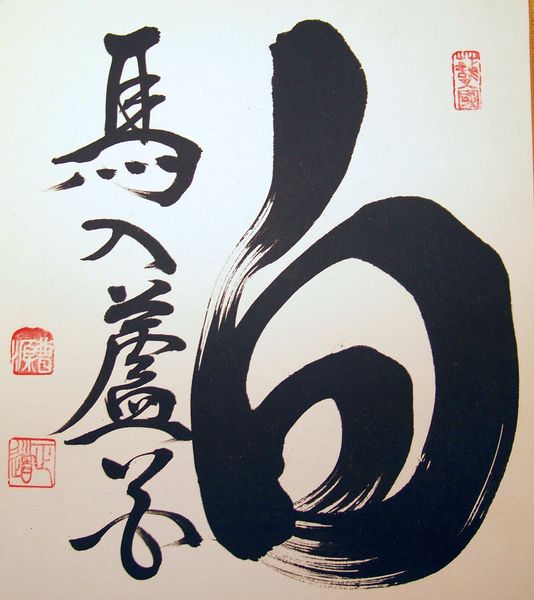 白
馬入蘆花